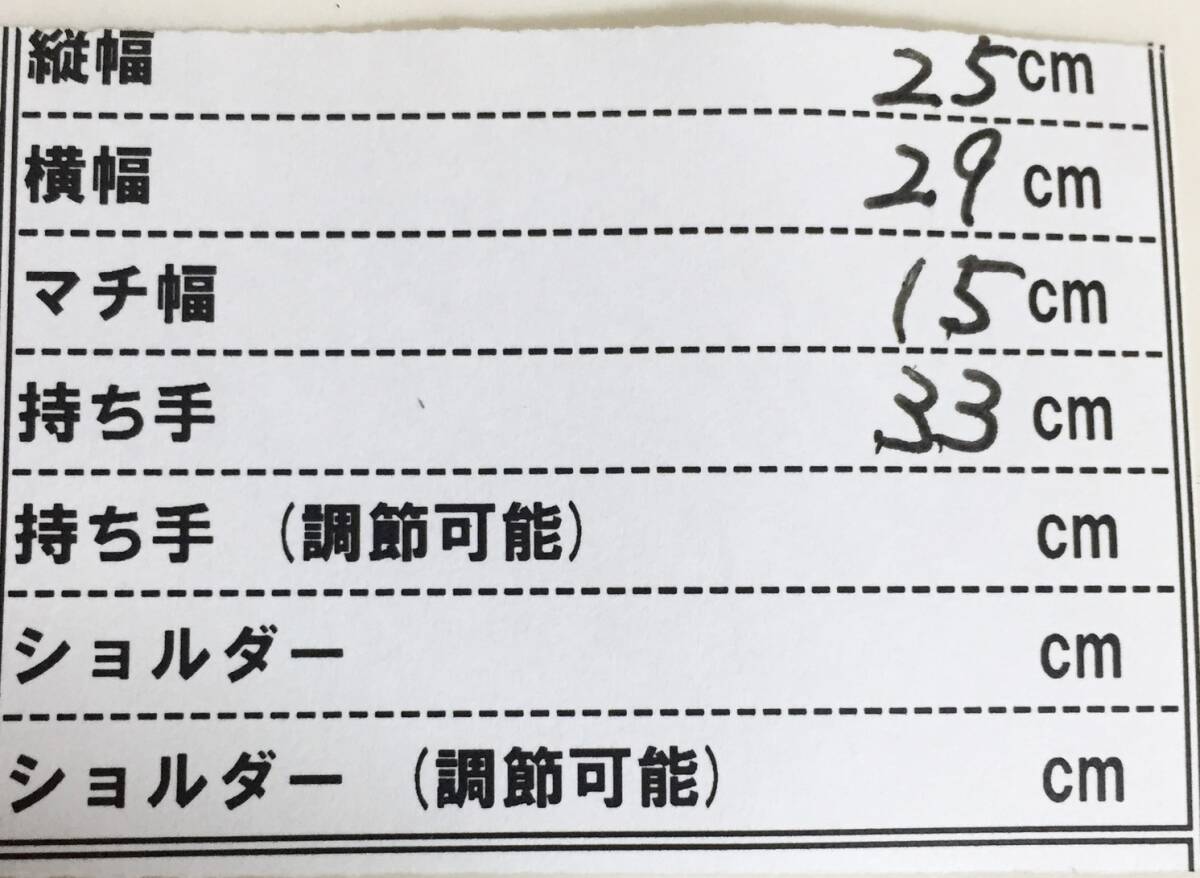 縦幅 25cm
横幅 29cm
マチ幅 15cm
持ち手 33cm
持ち手 (調節可能) cm
ショルダー cm
ショルダー (調節可能) cm